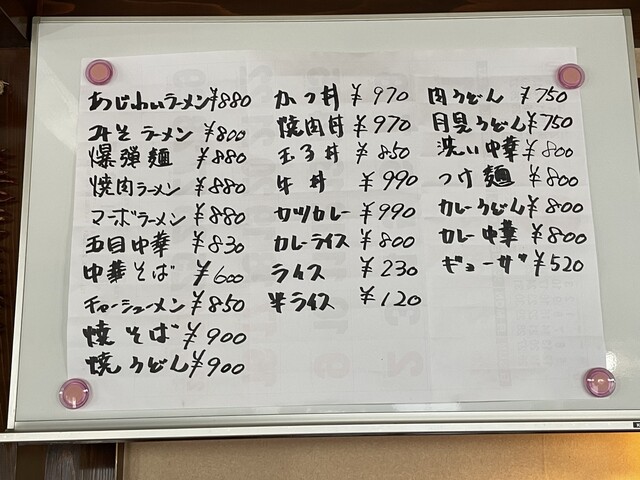 あじわいラーメン ¥880
みそラーメン ¥800
爆弾麺 ¥880
焼肉ラーメン ¥880
マーボラーメン ¥880
五目中華 ¥830
中華そば ¥600
チャーシューメン ¥850
焼そば ¥900
焼うどん ¥900
かつ丼 ¥970
焼肉丼 ¥970
玉子丼 ¥850
牛丼 ¥990
カツカレー ¥990
カレーライス ¥800
ライス ¥230
半ライス ¥120
肉うどん ¥750
月見うどん ¥750
洗い中華 ¥800
つけ麺 ¥800
カレーうどん ¥800
カレー中華 ¥800
ギョーザ ¥520